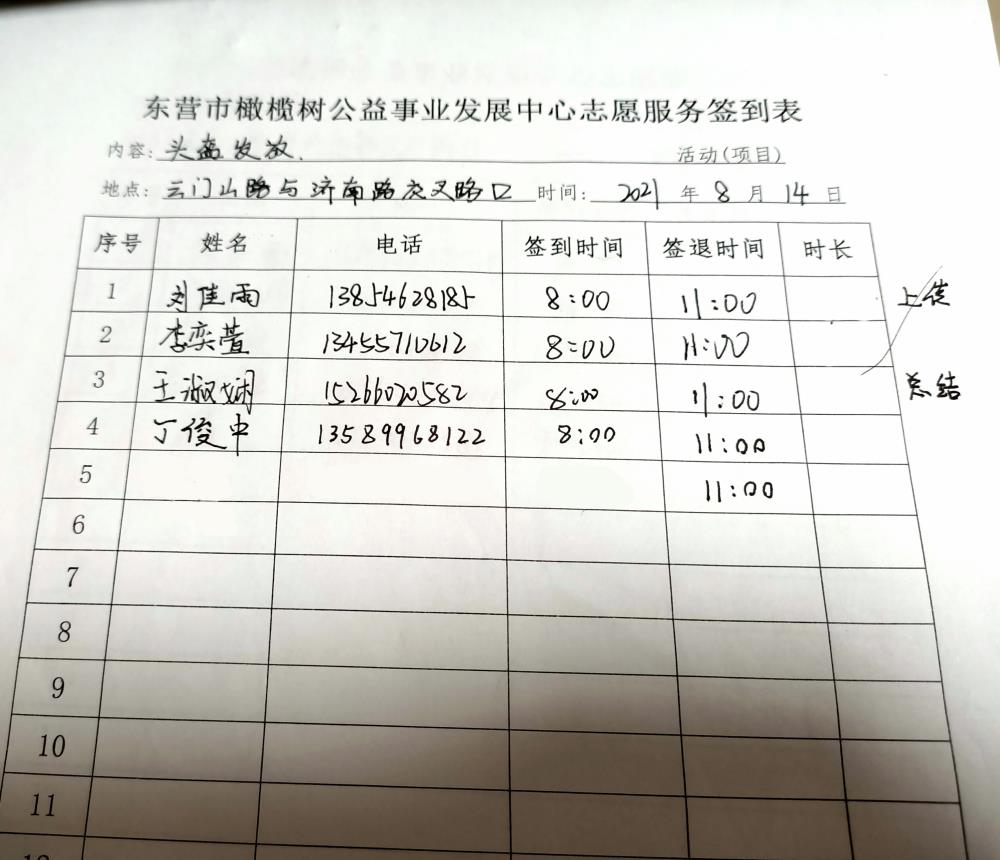 东营市橄榄树公益事业发展中心志愿服务签到表
内容：头盔发放. 活动(项目)
地点：云门山路与济南路交叉路口 时间：2021 年 8 月 14 日
序号 姓名 电话 签到时间 签退时间 时长
1 刘佳雨 13854628185 8:00 11:00 上传
2 李奕萱 13455710612 8:00 11:00
3 王淑娴 15266020582 8:00 11:00 总结
4 丁俊中 13589968122 8:00 11:00
5 11:00
6
7
8
9
10
11